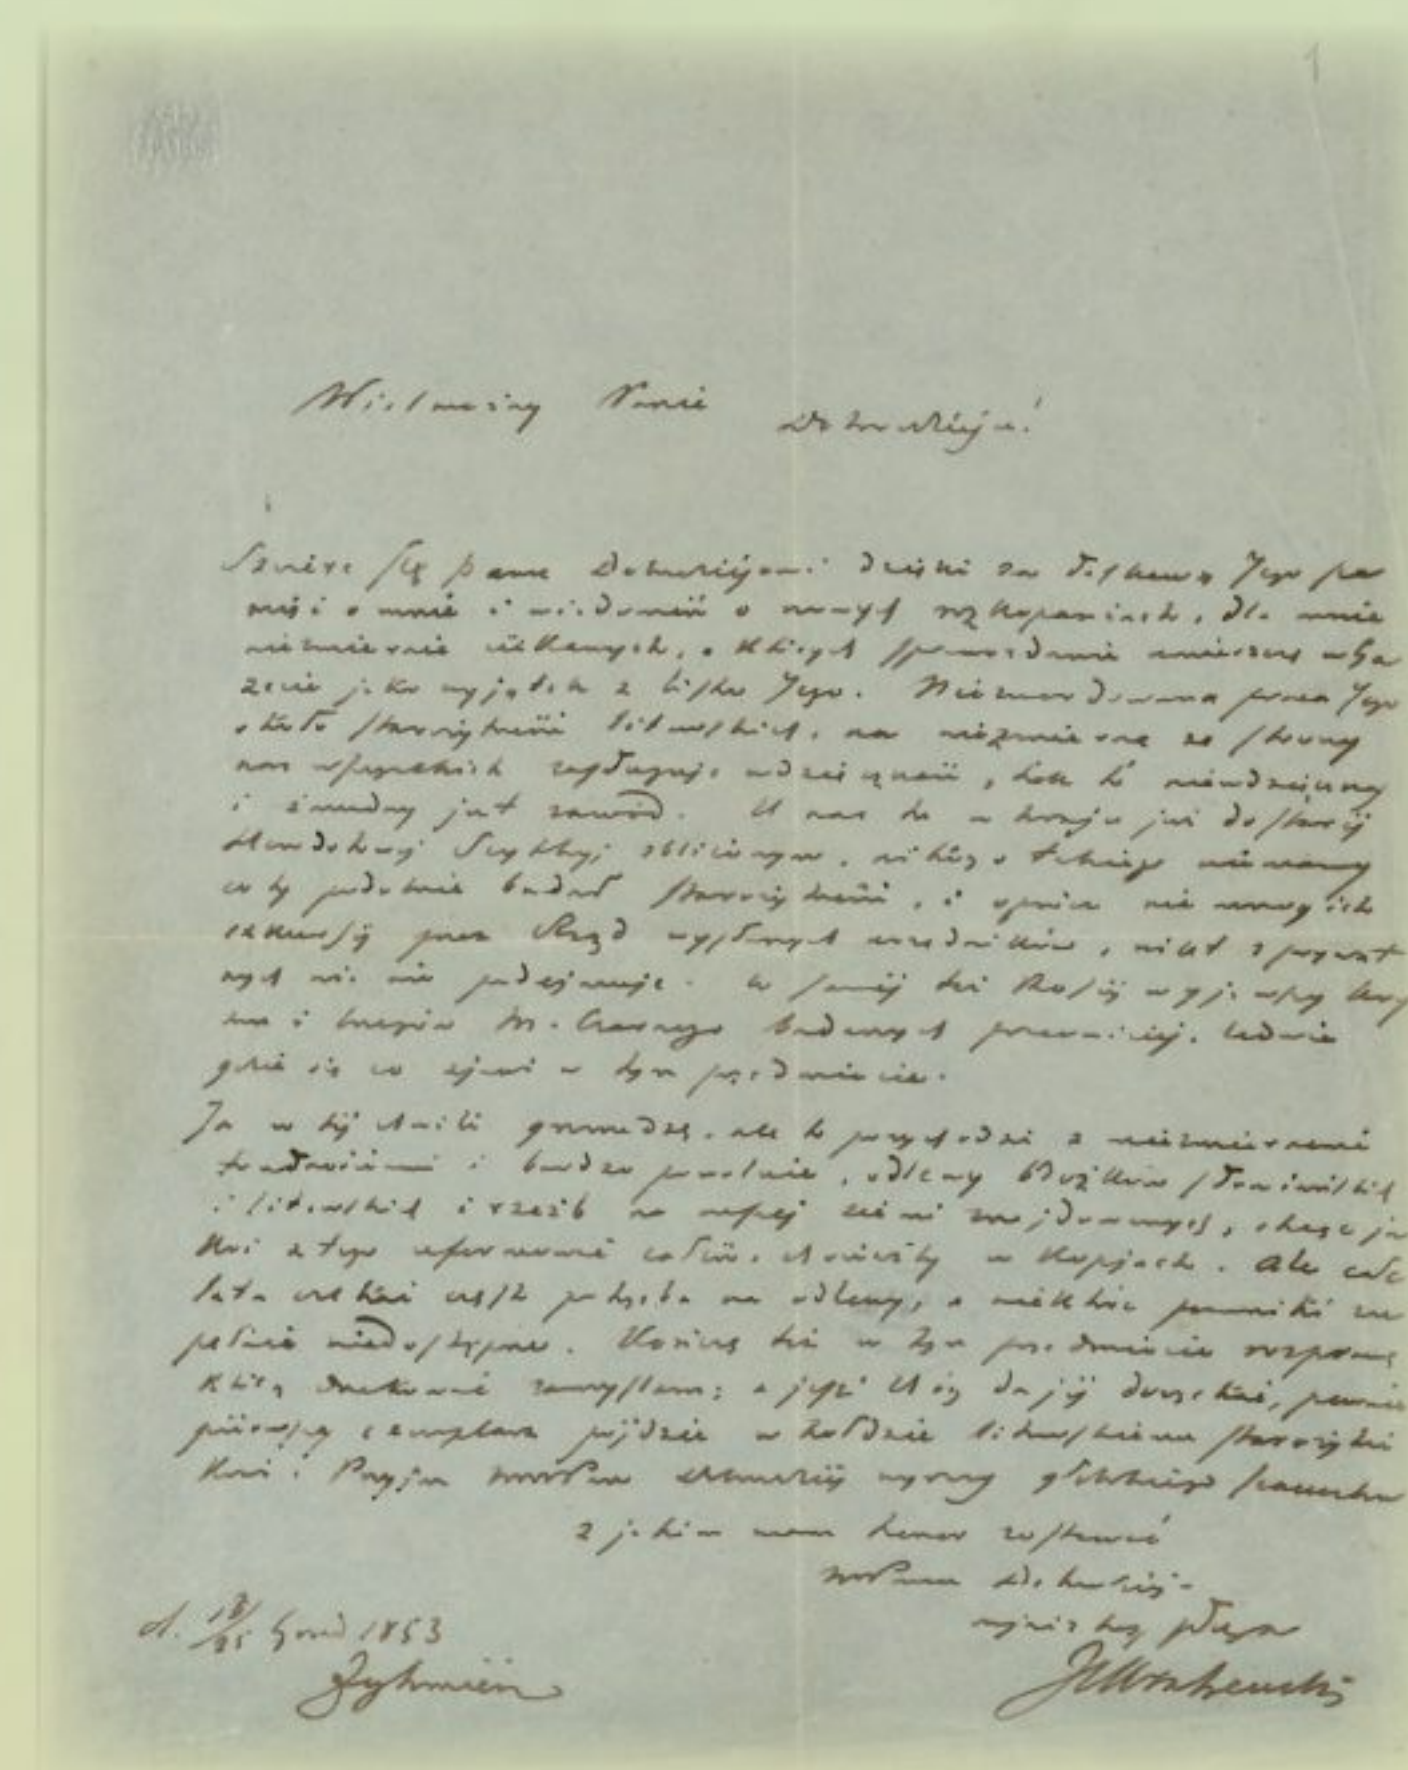 1
Wielmożny Panie
Dobrodzieju!
Szczére ślę Panu Dobrodziejowi dzięki za łaskawą Jego pa
mięć o mnie i wiadomość o nowych rozkopaniach, dla mnie
niezmiernie ciekawych, o których sprawozdanie umieszczę w Ga
zecie jako wyjątek z listu Jego. Niezmordowana praca Jego
około starożytności litewskich, na niezmierną ze strony
nas wszystkich zasługuje wdzięczność, bo to niewdzięczny
i żmudny jest zawód. U nas tu w kraju już do starej
Herodotowej Scythyi zbliżonym, nikogo takiego nie mamy
co by podobnie badał starożytności, i oprócz nie mnogich
przez Rząd wysłanych urzędników, nikt z prywat
nych nic nie podejmuje. W samej też Rosij wyjąwszy Kry
mu i brzegów M. Czarnego badanych pracowiciej, ledwie
gdzie się co zjawi w tym przedmiocie.
Ja w téj chwili gromadzę, ale to przychodzi z niezmiernemi
trudnościami i bardzo powolnie, odlewy Bożków słowiańskich
i litewskich i rzeźb na naszej ziemi znajdowanych, chcąc ja
kąś z tego uformować całość, chociażby w kopjach. Ale całe
lata czekać często potrzeba na odlewy, a niektóre pomniki zu
pełnie niedostępne. Kończę też w tym przedmiocie rozprawę
którą drukować zamyślam; a jeśli Bóg da jéj doczekać, pewnie
piérwszy exemplarz pójdzie w hołdzie litewskiemu starożytni
kowi. Przyjm WPan Dobrodziéj wyrazy głębokiego szacunku
z jakim mam honor zostawać
WPana Dobrodzieja
najniższy sługa
JIKraszewski
d. 13/25 Grud 1853
Żytomiérz